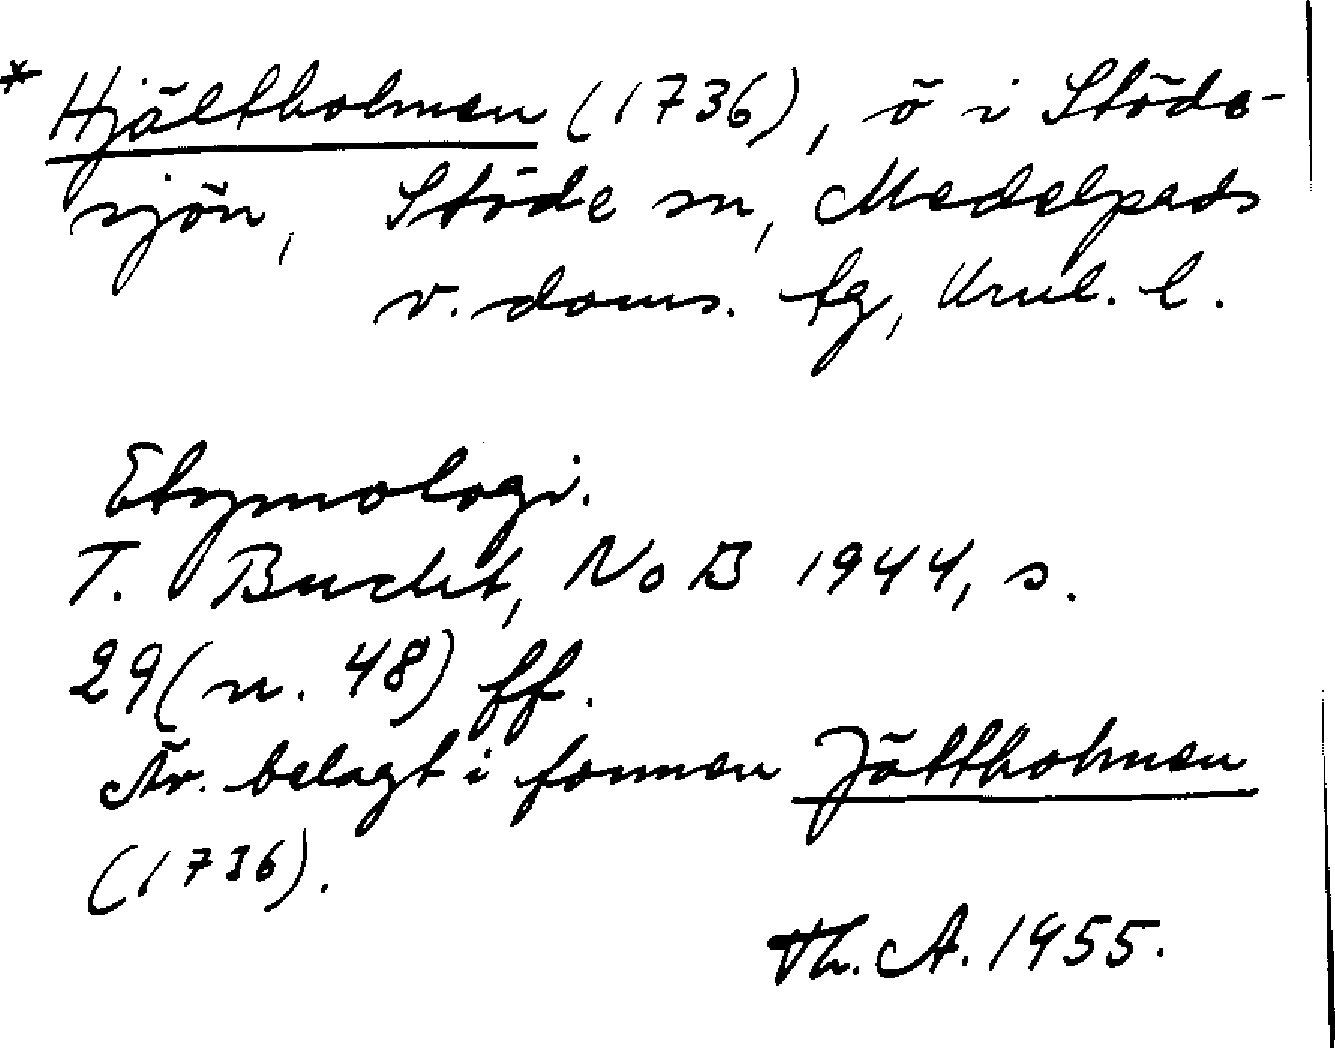 * Hjältholmen (1736), ö i Stöde-
sjön, Stöde sn, Medelpads
v. doms. tg, Vrnl. l.
Etymologi.
T. Bucht, NoB 1944, s.
29 (n. 48) ff.
Är belagt i formen Jältholmen
(1736).
Th. A. 1955.